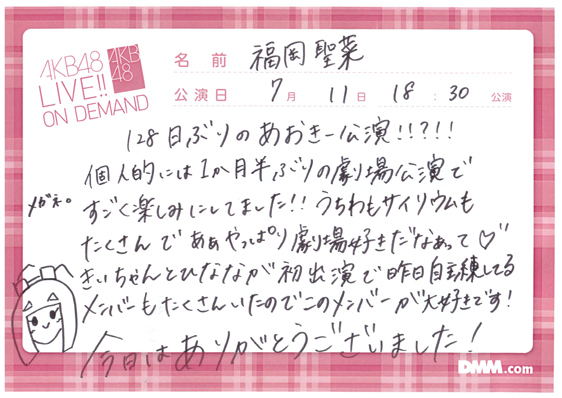 AKB48
LIVE!!
ON DEMAND
AKB
48
名前 福岡聖菜
公演日 7月 11日 18:30 公演
128日ぶりのあおきー公演!!?!!
個人的には1か月半ぶりの劇場公演で
メガネ。
すごく楽しみにしてました!! うちわもサイリウムも
たくさんで ああやっぱり劇場好きだなあって♡
きぃちゃんとひななが初出演で昨日自主練してる
メンバーもたくさんいたのでこのメンバーが大好きです!
今日はありがとうございました!
DMM.com